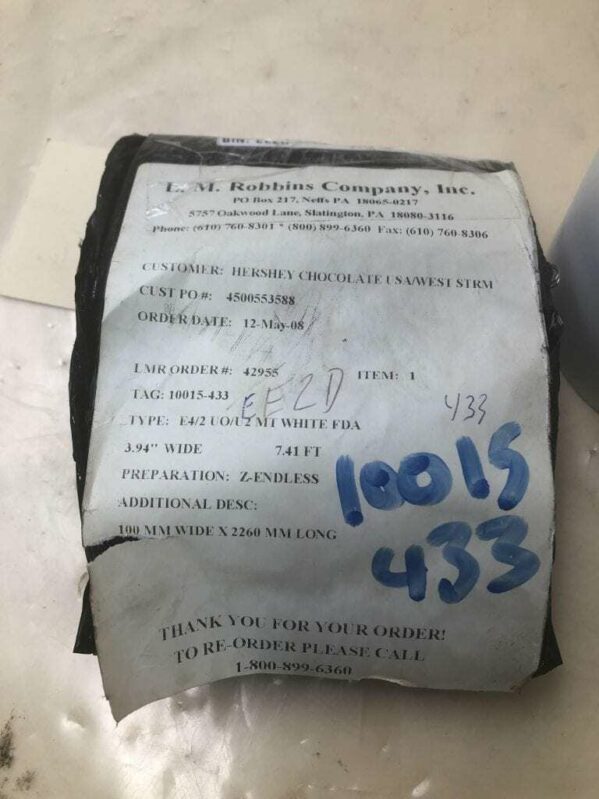 BIN: EE2D
L. M. Robbins Company, Inc.
PO Box 217, Neffs PA 18065-0217
5757 Oakwood Lane, Slatington, PA 18080-3116
Phone: (610) 760-8301 * (800) 899-6360 Fax: (610) 760-8306
CUSTOMER: HERSHEY CHOCOLATE USA/WEST STRM
CUST PO #: 4500553588
ORDER DATE: 12-May-08
LMR ORDER #: 42955 ITEM: 1
TAG: 10015-433
EE2D 433
TYPE: E4/2 UO/U2 MT WHITE FDA
3.94" WIDE 7.41 FT
PREPARATION: Z-ENDLESS
10015
ADDITIONAL DESC:
100 MM WIDE X 2260 MM LONG
433
THANK YOU FOR YOUR ORDER!
TO RE-ORDER PLEASE CALL
1-800-899-6360